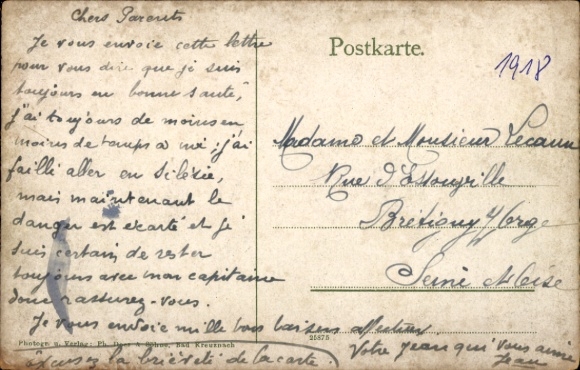 Chers Parents
Je vous envoie cette lettre
pour vous dire que je suis
toujours en bonne santé,
j'ai toujours de moins en
moins de temps a moi, j'ai
failli aller en Silésie,
mais maintenant le
danger est écarté et je
suis certain de rester
toujours avec mon capitaine
donc rassurez-vous.
Je vous envoie mille bons baisers
Votre Jean qui vous aime
Jean
excusez la brièveté de la carte.
Postkarte.
1918
Madame et Monsieur Lecaun
Rue d'Essouville
Brétigny s/ Orge
Seine et Oise
Photogr. u. Verlag: Ph. Bad Kreuznach
25875